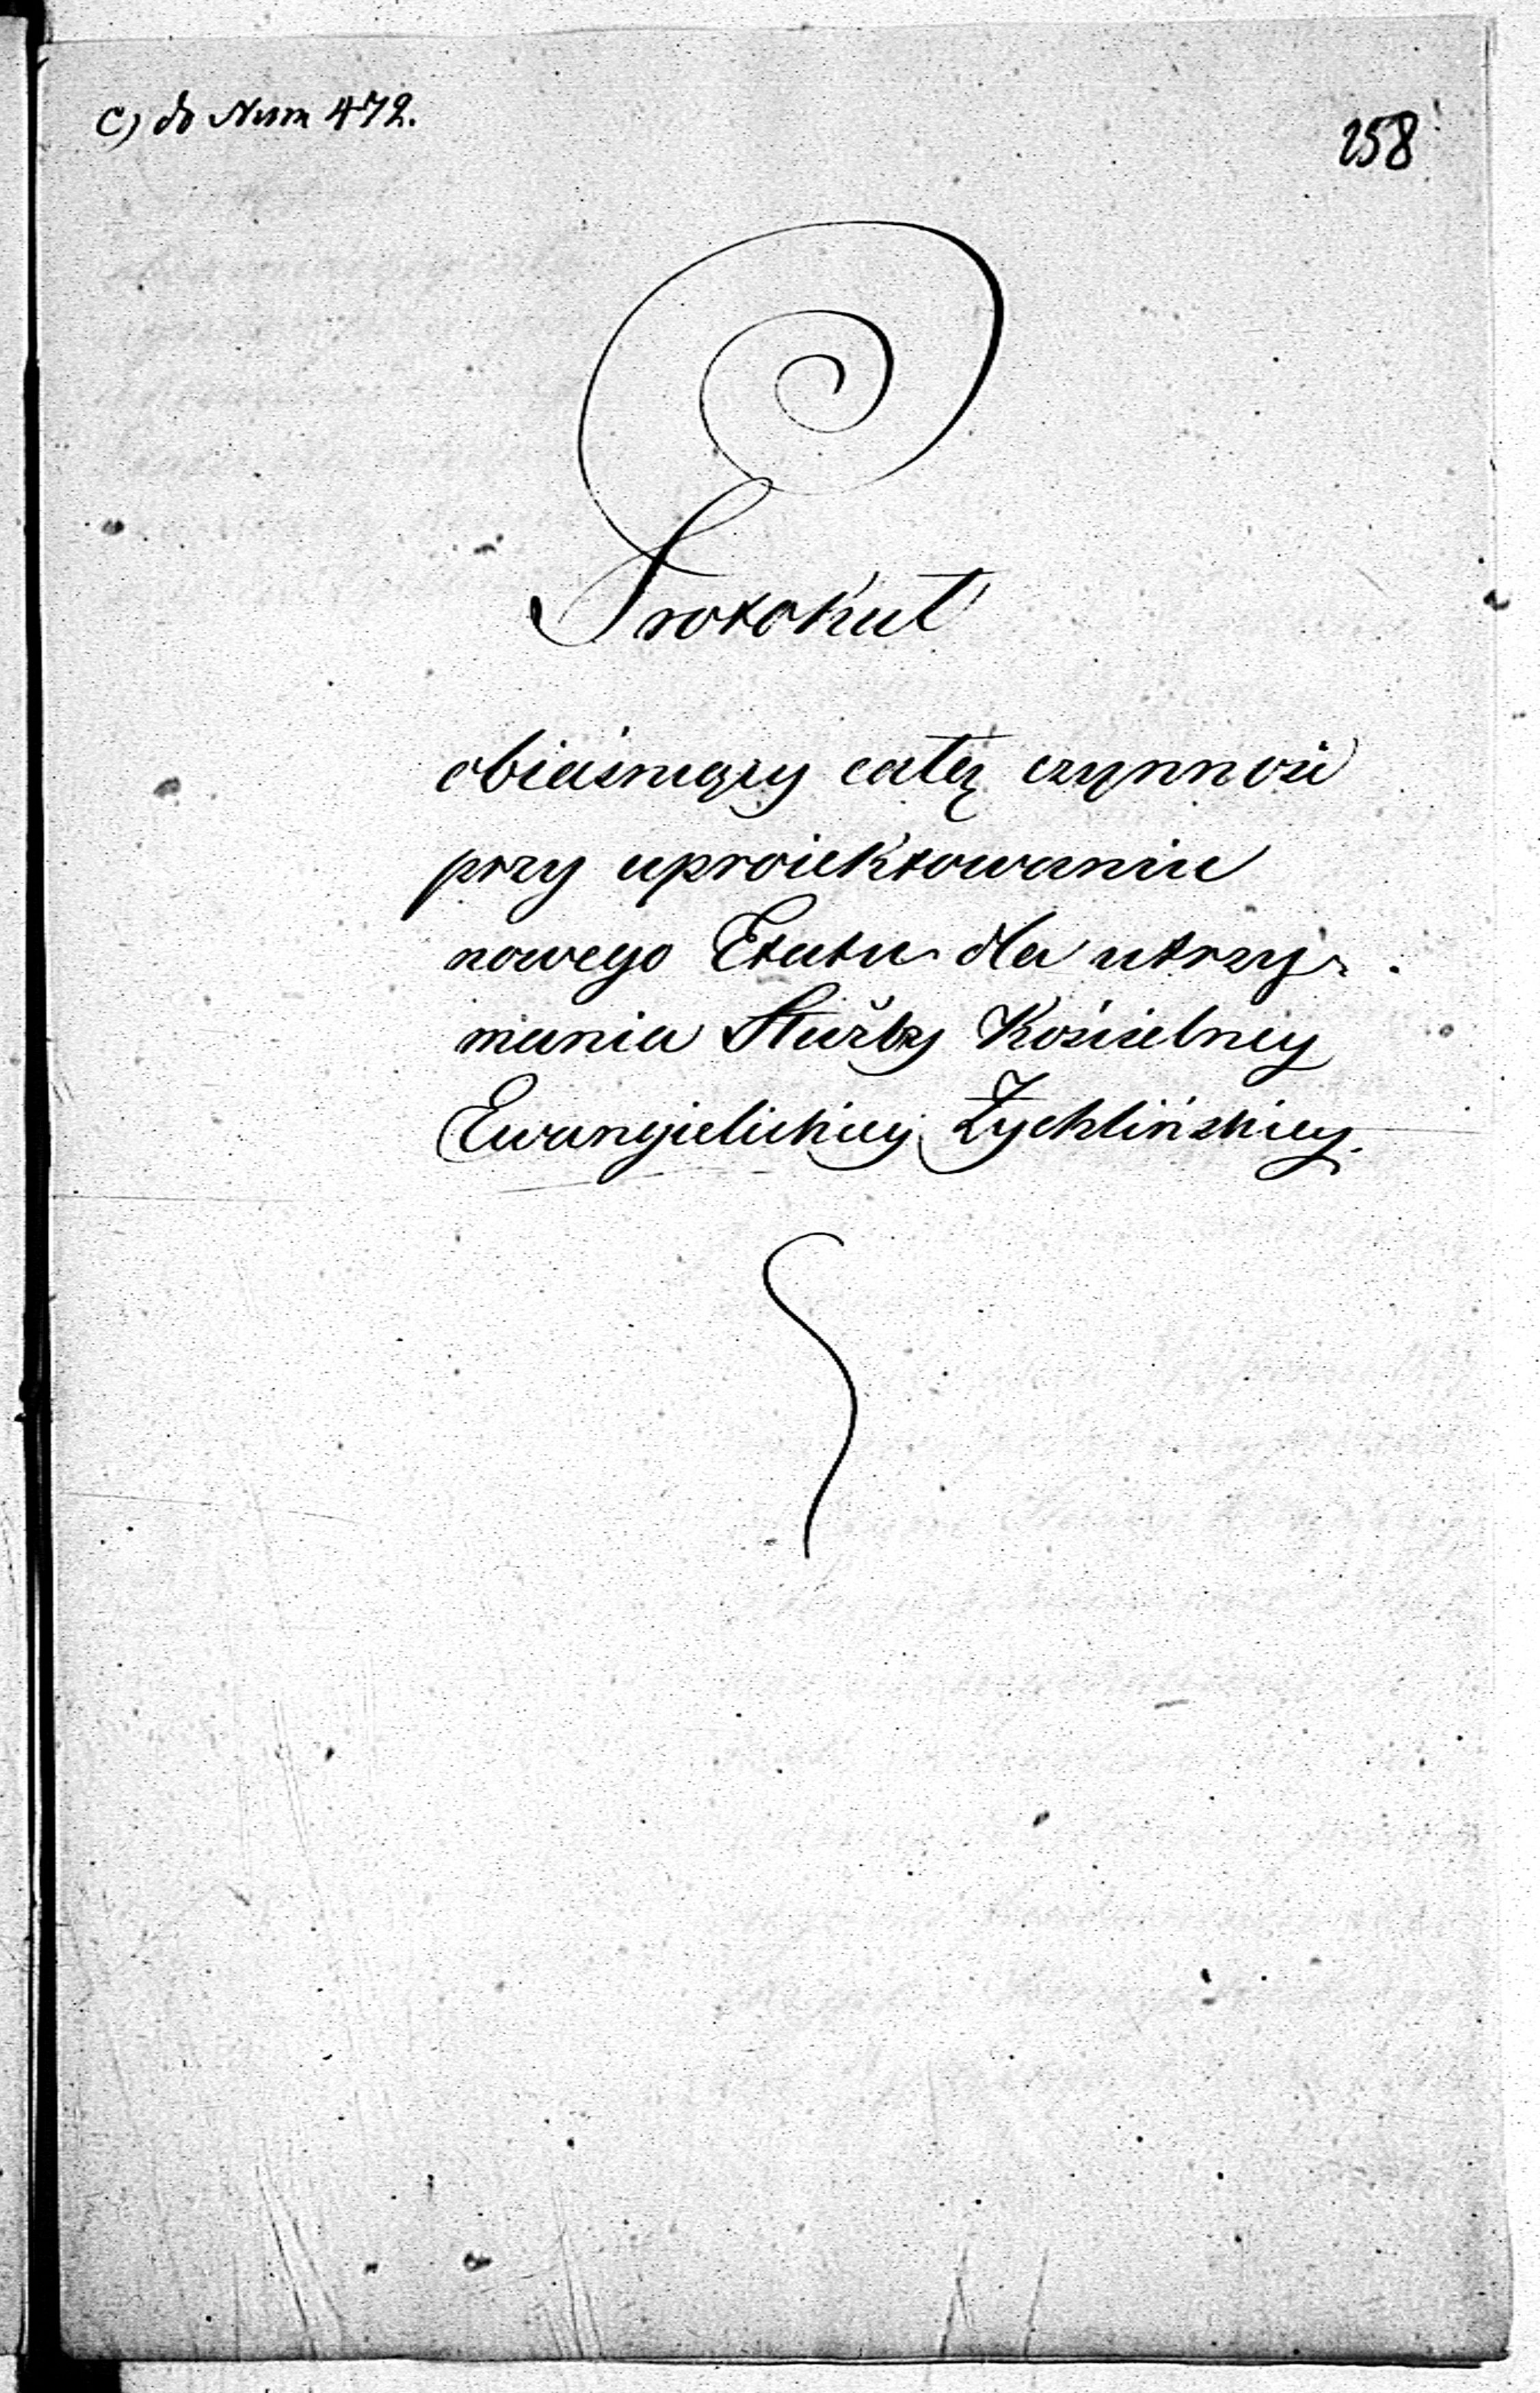 C) do Num 472.
258
Protokuł
obiaśniaiący całą czynność
przy uproiektowaniu
nowego Etatu dla utrzy-
mania Służby Kościelney
Ewangielickiey Żychlińskiey.